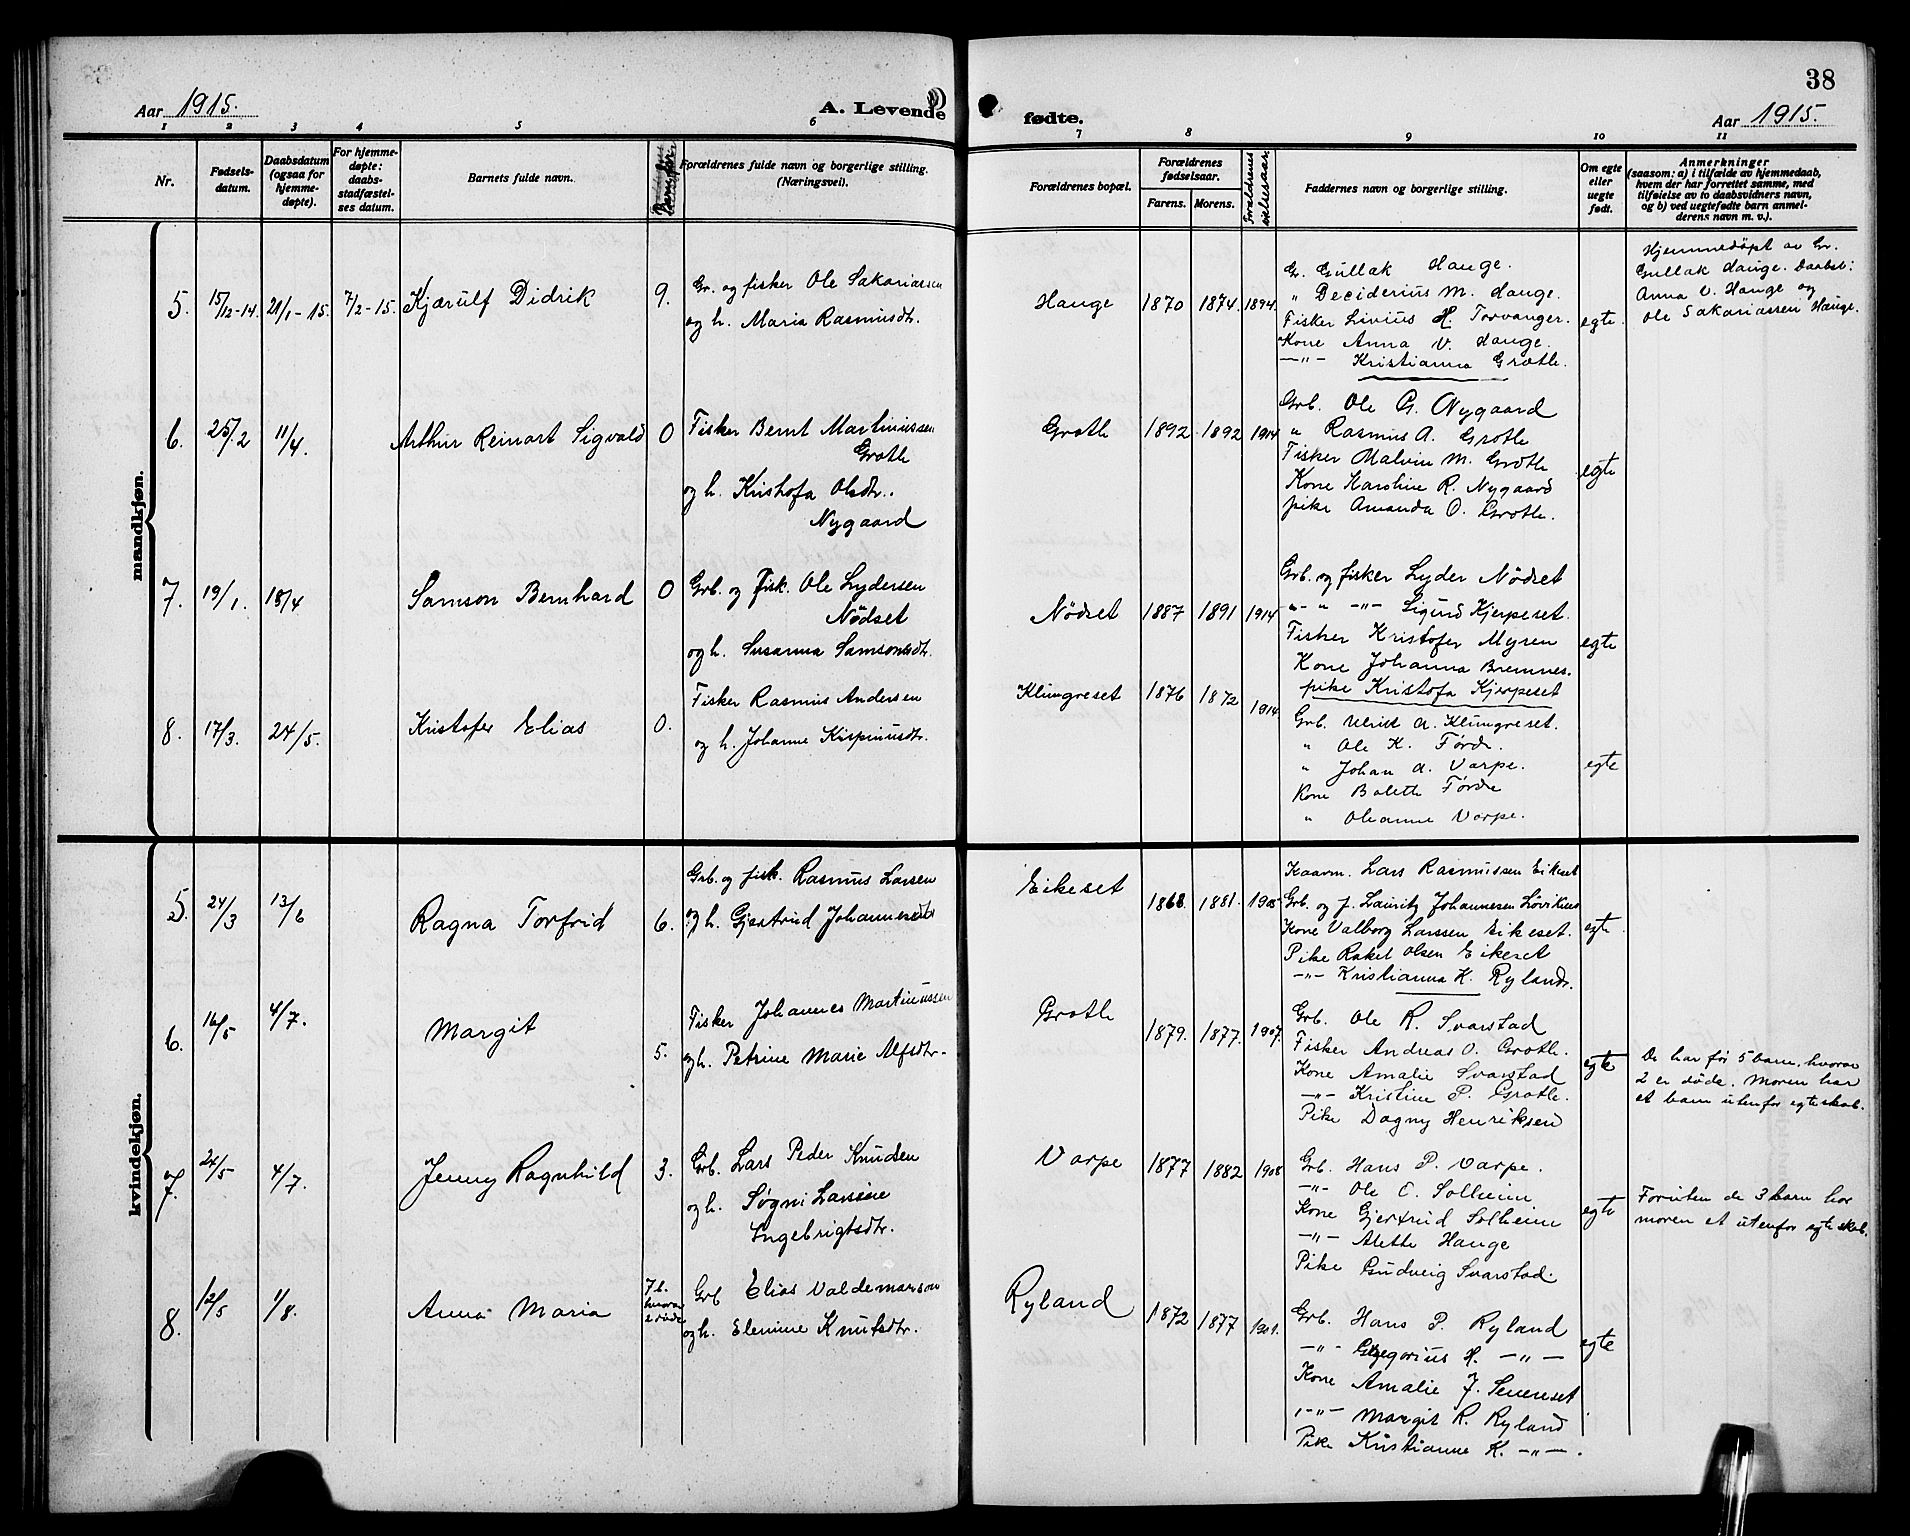 38
Aar 1915.
A. Levende
fødte.
Aar 1915.
1 2 3 4 5 6 7 8 9 10 11
Nr.
Fødsels-
datum.
Daabsdatum
(ogsaa for
hjemme-
døpte).
For hjemme-
døpte:
daabs-
stadfæstel-
ses datum.
Barnets fulde navn.
Forældrenes fulde navn og borgerlige stilling.
(Næringsvei).
Forældrenes bopæl.
Forældrenes
fødselsaar.
Farens. Morens.
Forældrenes
vielsesaar.
Faddernes navn og borgerlige stilling.
Om egte
eller
uegte
født.
Anmerkninger
(saasom: a) i tilfælde av hjemmedaab,
hvem der har forrettet samme, med
tilføielse av to daabsvidners navn,
og b) ved uegtefødte barn anmel-
derens navn m. v.).
mandkjøn.
5. 15/12-14. 21/1-15. 7/2-15. Kjærulf Didrik 9.
Gr. og fisker Ole Sakariassen
og h. Maria Rasmusdtr.
Hauge 1870 1874 1894
Gr. Gullak Hauge.
" Deciderius M. Hauge.
Fisker Livius H. Torvanger.
Kone Anna V. Hauge.
—"— Kristianna Grotle.
egte.
Hjemmedøpt av Gr.
Gullak Hauge. Daabsv:
Anna V. Hauge og
Ole Sakariassen Hauge.
6. 25/2 11/4 Arthur Reinart Sigvald 0
Fisker Bernt Martinussen
Grotle
og h. Kristofa Olsdtr.
Nygaard
Grotle 1892 1892 1914
Grb. Ole G. Nygaard
" Rasmus A. Grotle
Fisker Malvin M. Grotle
Kone Karoline R. Nygaard
pike Amanda O. Grotle.
egte
7. 19/1. 18/4 Samson Bernhard 0
Grb. og fisk. Ole Lydersen
Nödset
og h. Susanna Samsonsdtr.
Nödset 1887 1891 1914
Grb. og fisker Lyder Nödset
"-" —"— Sigurd Kjerpeset.
Fisker Kristofer Myren
Kone Johanna Bremnes.
pike Kristofa Kjerpeset
egte
8. 17/3. 24/5. Kristofer Elias 0.
Fisker Rasmus Andersen
og h. Johanne Kispinusdtr.
Klungreset 1876 1872 1914
Grb. Ulrik A. Klungreset.
" Ole K. Förde.
" Johan A. Varpe.
Kone Boleth Förde
" Oleanne Varpe.
egte
kvindekjøn.
5. 24/3 13/6 Ragna Torfrid 6.
Grb. og fisk. Rasmus Larsen
og h. Gjertrud Johannesdtr
Eikeset 1868. 1881. 1905
Kaarm. Lars Rasmussen Eikeset
Grb. og f. Lauritz Johannesen Löviknes
Kone Valborg Larssen Eikeset.
Pike Rakel Olsen Eikeset
—"— Kristianna K. Ryland.
egte.
6. 16/5 4/7. Margit 5.
Fisker Johannes Martinussen
og h. Petrine Marie Alfsdtr.
Grotle 1879. 1877. 1907.
Grb. Ole R. Svarstad
Fisker Andreas O. Grotle.
Kone Amalie Svarstad
—"— Kristine P. Grotle.
Pike Dagny Henriksen
egte
De har før 5 barn, hvorav
2 er døde. Moren har
et barn utenfor egteskab.
7. 24/5 4/7. Jenny Ragnhild 3.
Grb. Lars Peder Knudsen
og h. Søgni Lassine
Ingebrigtsdtr.
Varpe 1877 1882 1908
Grb. Hans P. Varpe.
—"— Ole C. Solheim
Kone Gjertrud Solheim
—"— Alette Hauge
Pike Gudveig Svarstad.
egte
Foruten de 3 barn har
moren et utenfor egteskab.
8. 12/5 1/8. Anna Maria 7 b. hvorav 2 døde
Grb Elias Valdemarson
og h. Elenine Knutsdtr.
Ryland 1872 1877 1901.
Grb. Hans P. Ryland
—"— Gregorius H. —"—
Kone Amalie J. Senereset
—"— Margit R. Ryland
Pike Kristianne K. —"—.
egte